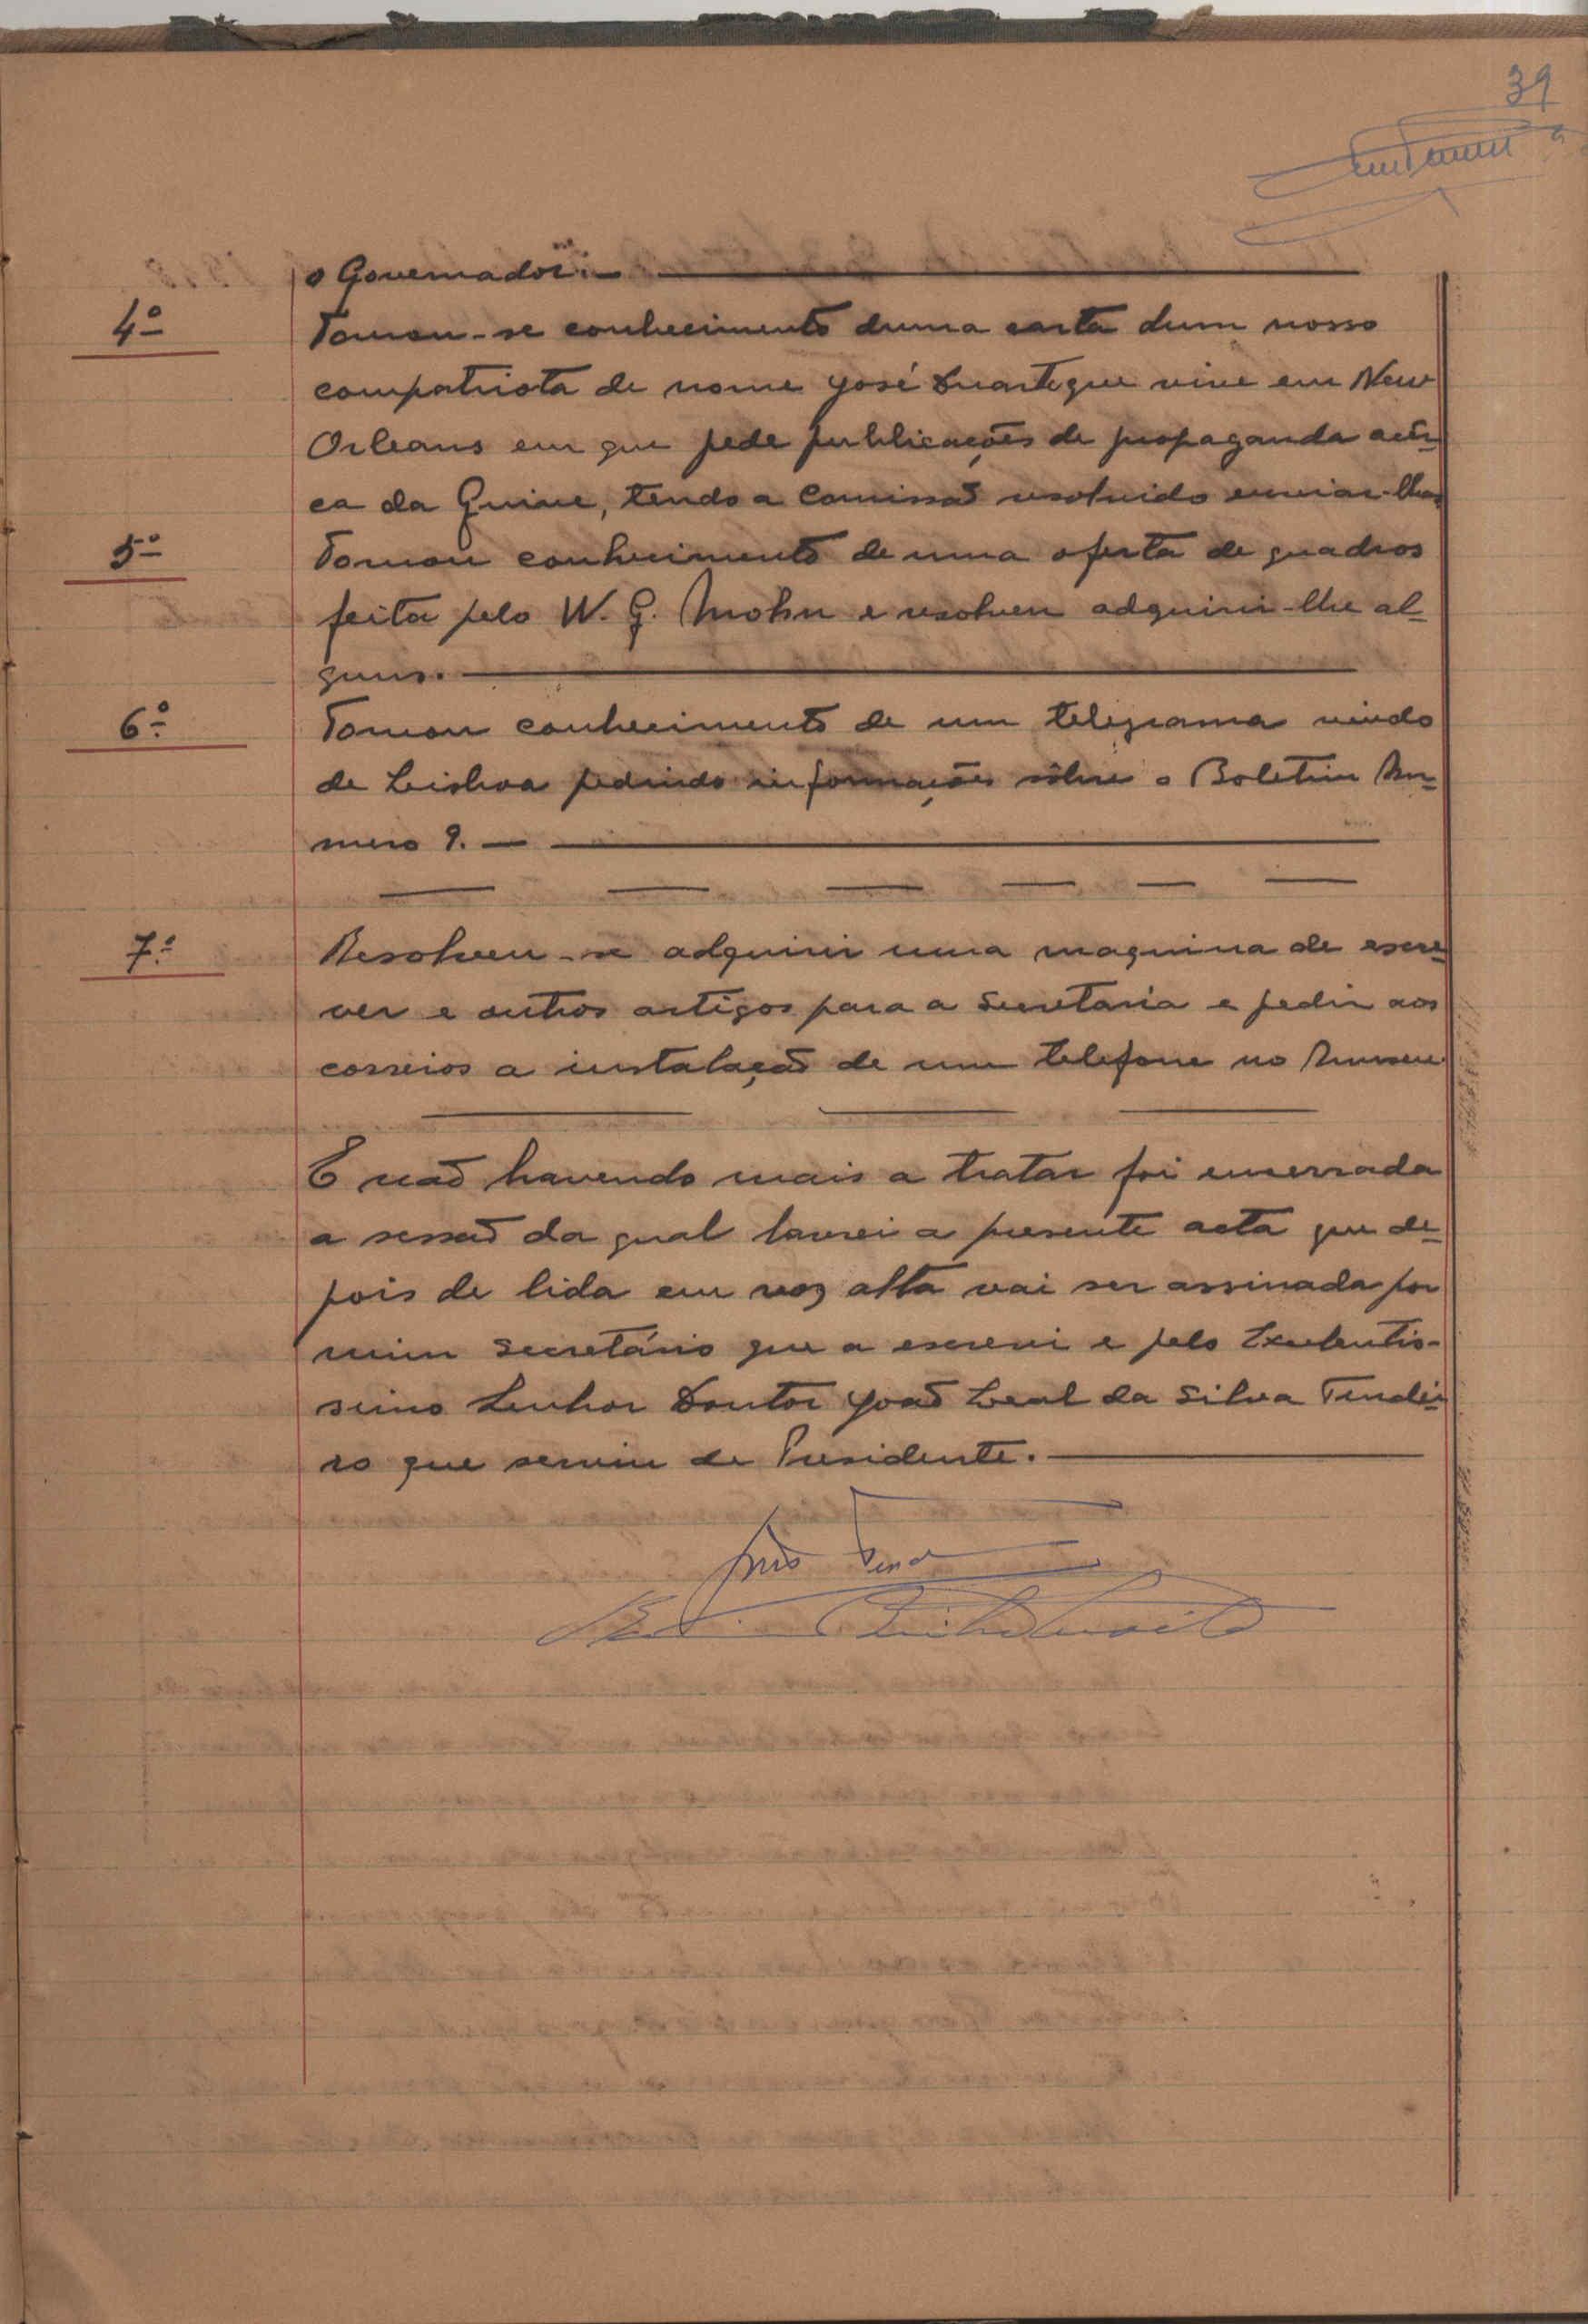 39
o Governador.—
4º Tomou-se conhecimento duma carta dum nosso
compatriota de nome José Duarte que vive em New
Orleans em que pede publicações de propaganda acêr-
ca da Guine, tendo a Comissão resolvido enviar-lhas
5º Tomou conhecimento de uma oferta de quadros
feita pelo W. G. Mohn e resolveu adquirir-lhe al-
guns.
6º Tomou conhecimento de um telegrama vindo
de Lisboa pedindo informações sôbre o Boletim Nu-
mero 9. —
7º Resolveu-se adquirir uma maquina de escre-
ver e outros artigos para a Secretaria e pedir aos
correios a instalação de um telefone no Museu
E não havendo mais a tratar foi encerrada
a sessão da qual lavrei a presente acta que de-
pois de lida em voz alta vai ser assinada por
mim Secretário que a escrevi e pelo Excelentis-
simo Senhor Doutor João Leal da Silva Tendei-
ro que serviu de Presidente.